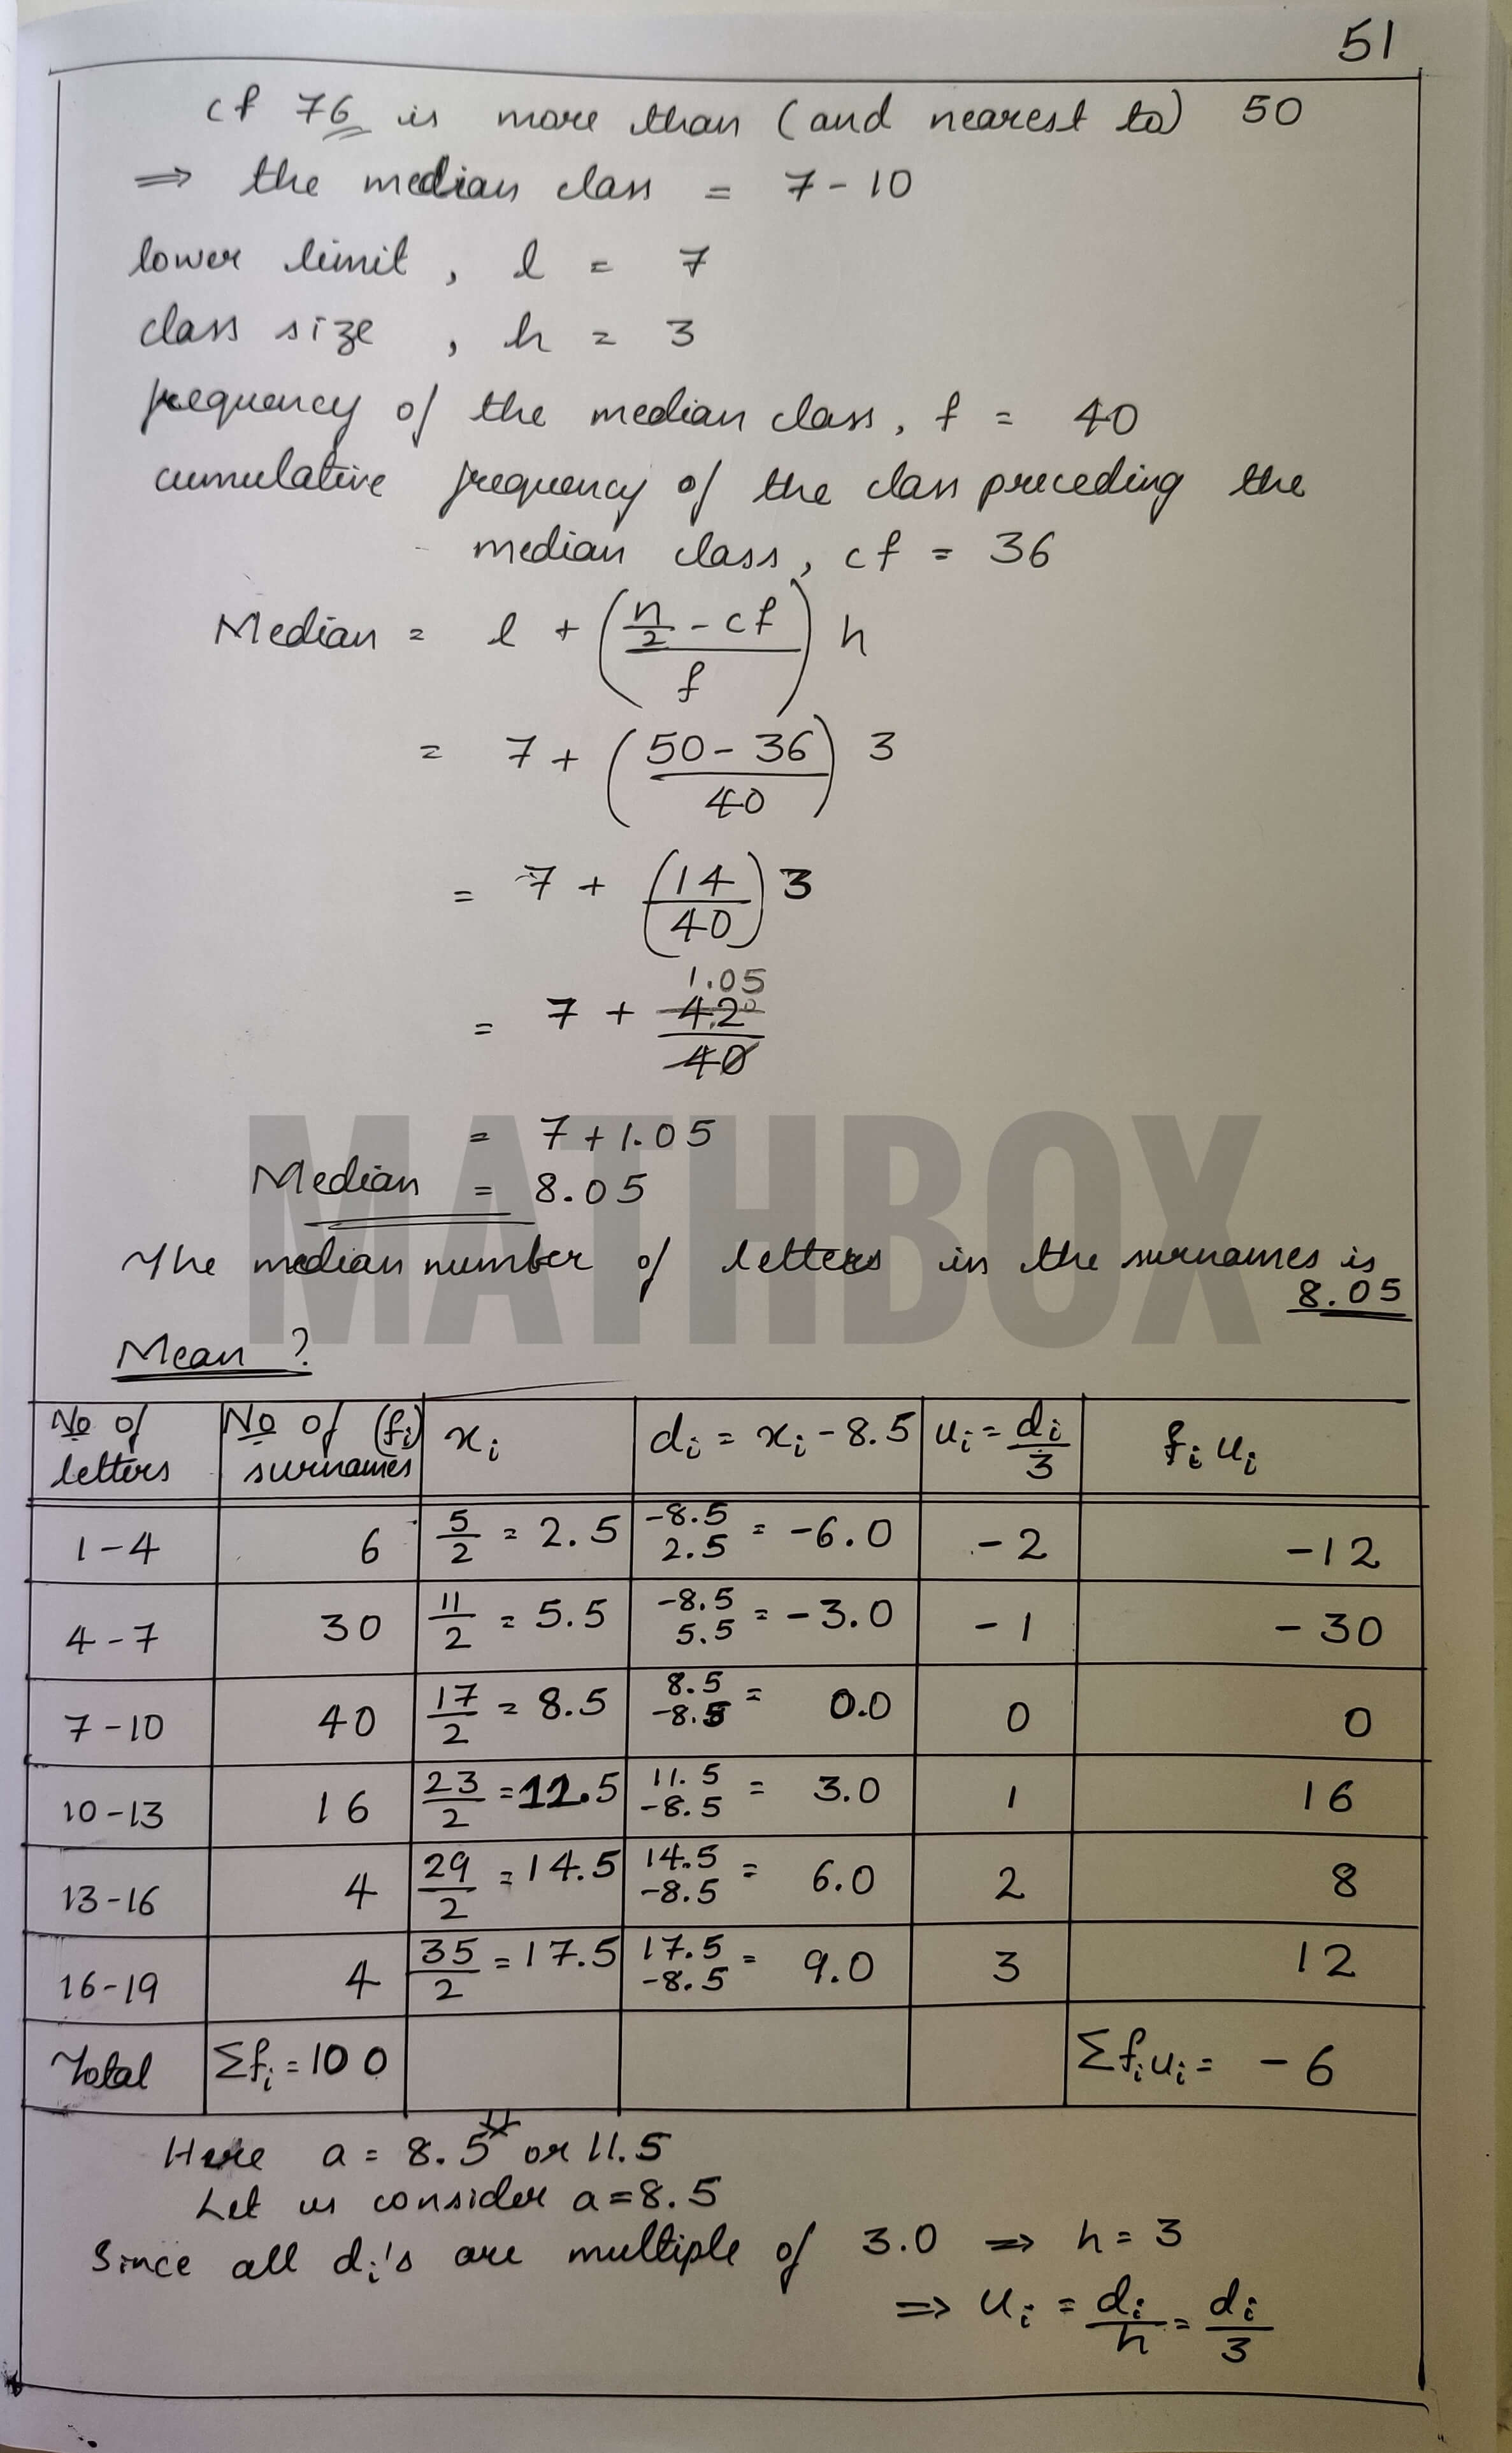 51
cf 76 is more than (and nearest to) 50
⇒ the median class = 7-10
lower limit, l = 7
class size, h = 3
frequency of the median class, f = 40
cumulative frequency of the class preceding the
median class, cf = 36
Median = l + ((n/2 - cf)/f) h
= 7 + ((50-36)/40) 3
= 7 + (14/40) 3
1.05
= 7 + 42/40
= 7+1.05
Median = 8.05
The median number of letters in the surnames is
8.05
MATHBOX
Mean ?
No of letters No of (fi) surnames xi di = xi - 8.5 ui = di/3 fi ui
1-4 6 5/2 = 2.5 -8.5 2.5 = -6.0 -2 -12
4-7 30 11/2 = 5.5 -8.5 5.5 = -3.0 -1 -30
7-10 40 17/2 = 8.5 8.5 -8.5 = 0.0 0 0
10-13 16 23/2 = 12.5 11.5 -8.5 = 3.0 1 16
13-16 4 29/2 = 14.5 14.5 -8.5 = 6.0 2 8
16-19 4 35/2 = 17.5 17.5 -8.5 = 9.0 3 12
Total Σfi = 100 Σfiui = -6
Here a = 8.5 or 11.5
Let us consider a = 8.5
Since all di's are multiple of 3.0 ⇒ h = 3
⇒ ui = di/h = di/3